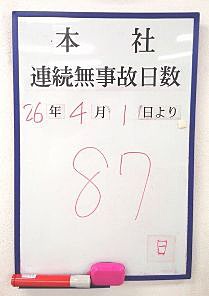 本 社
連続無事故日数
26年4月1日より
87
日